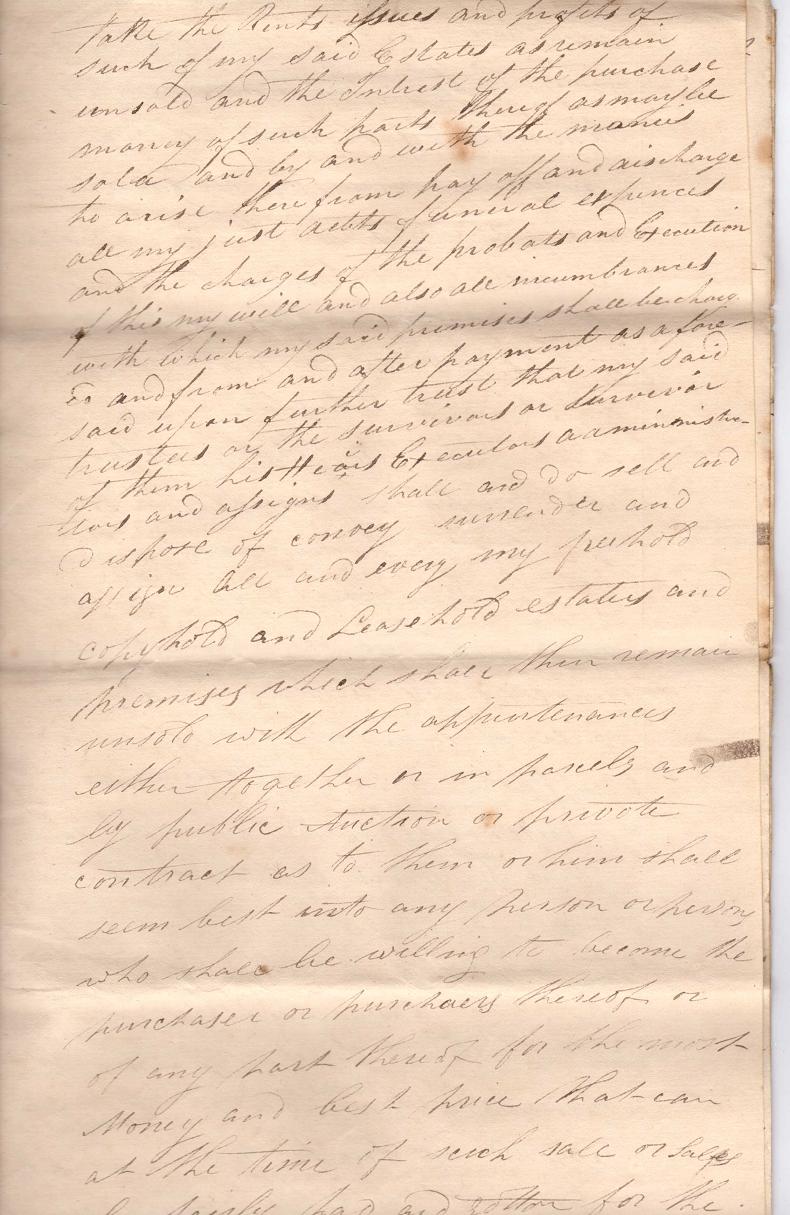 take the Rents issues and profits of
such of my said Estates as remain
unsold and the Interest of the purchase
money of such parts thereof as may be
sold and by and with the monies
to arise therefrom pay off and discharge
all my just debts funeral expences
and the charges of the probate and Execution
of this my will and also all incumbrances
with which my said premises shall be charg
ed and from and after payment as afore-
said upon further trust that my said
trustees or the survivors or survivor
of them his Heirs Executors administra-
tors and assigns shall and do sell and
dispose of convey surrender and
assign all and every my freehold
copyhold and Leasehold estates and
premises which shall then remain
unsold with the appurtenances
either together or in parcels and
by public Auction or private
contract as to them or him shall
seem best unto any person or persons
who shall be willing to become the
purchaser or purchaers thereof or
of any part thereof for the most
Money and best price that can
at the time of such sale or Sales
be fairly had and gotten for the